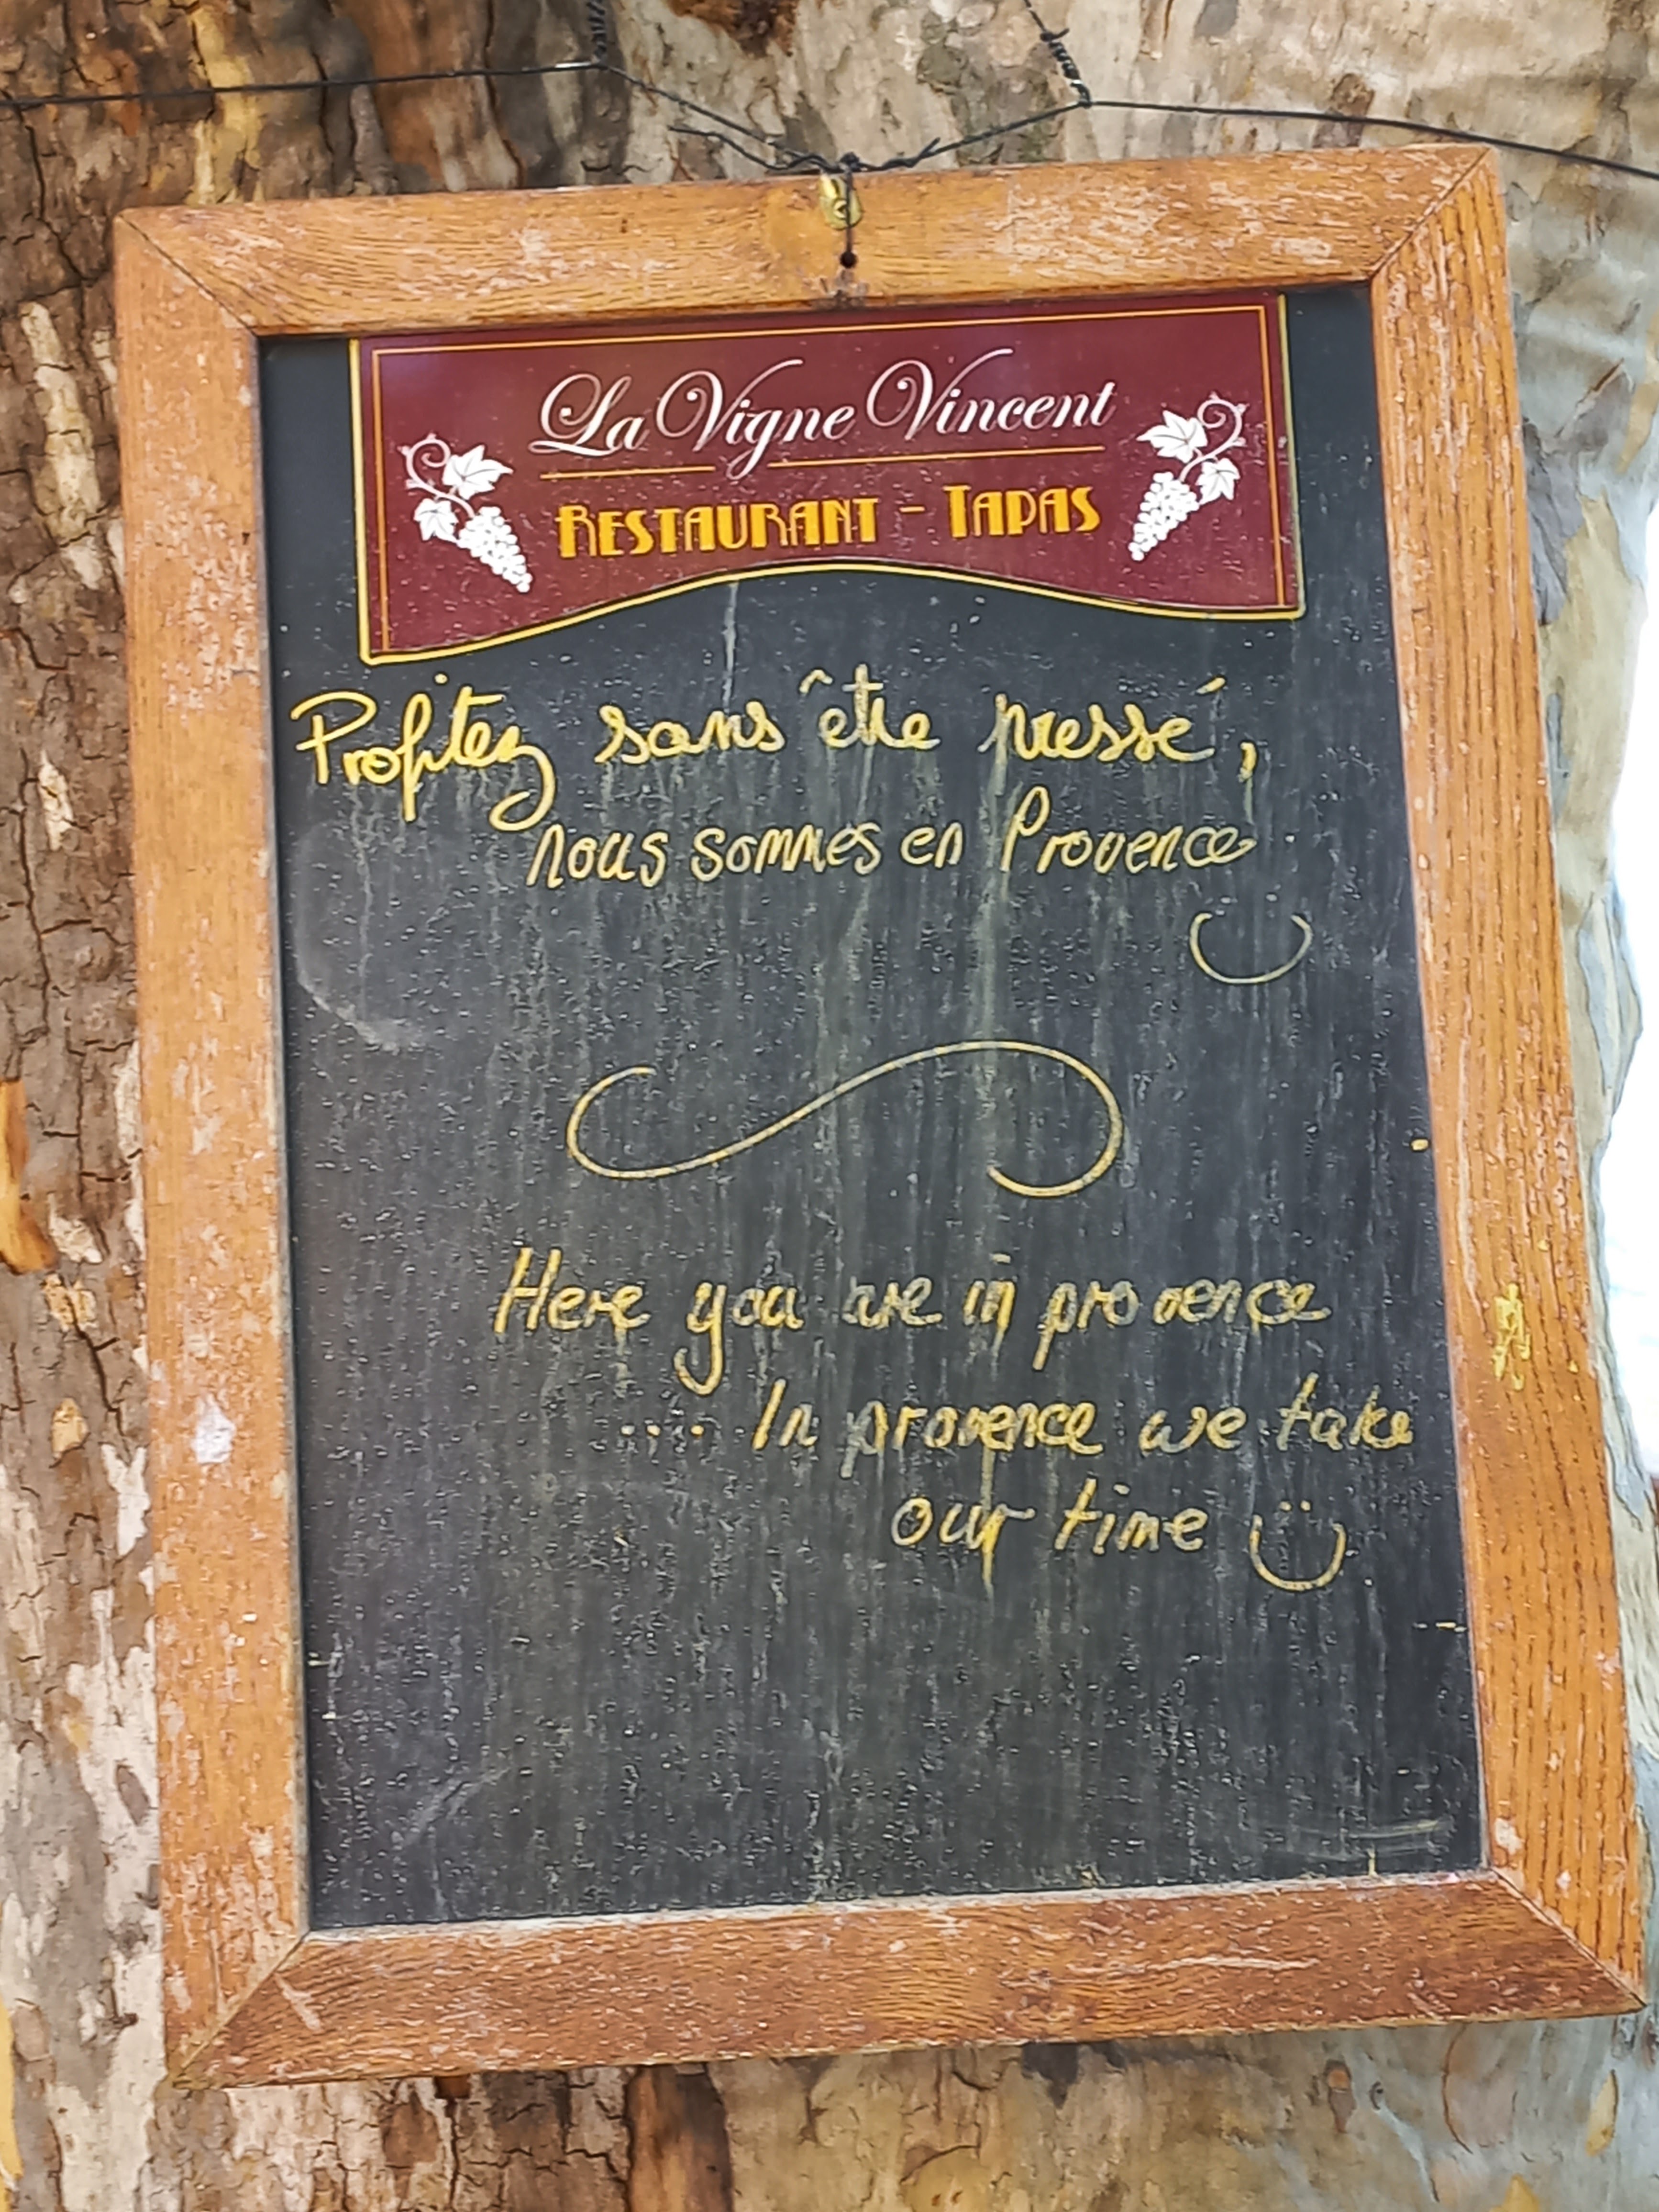 La Vigne Vincent
RESTAURANT - TAPAS
Profitez sans être pressé,
nous sommes en Provence
Here you are in provence
.... In provence we take
our time